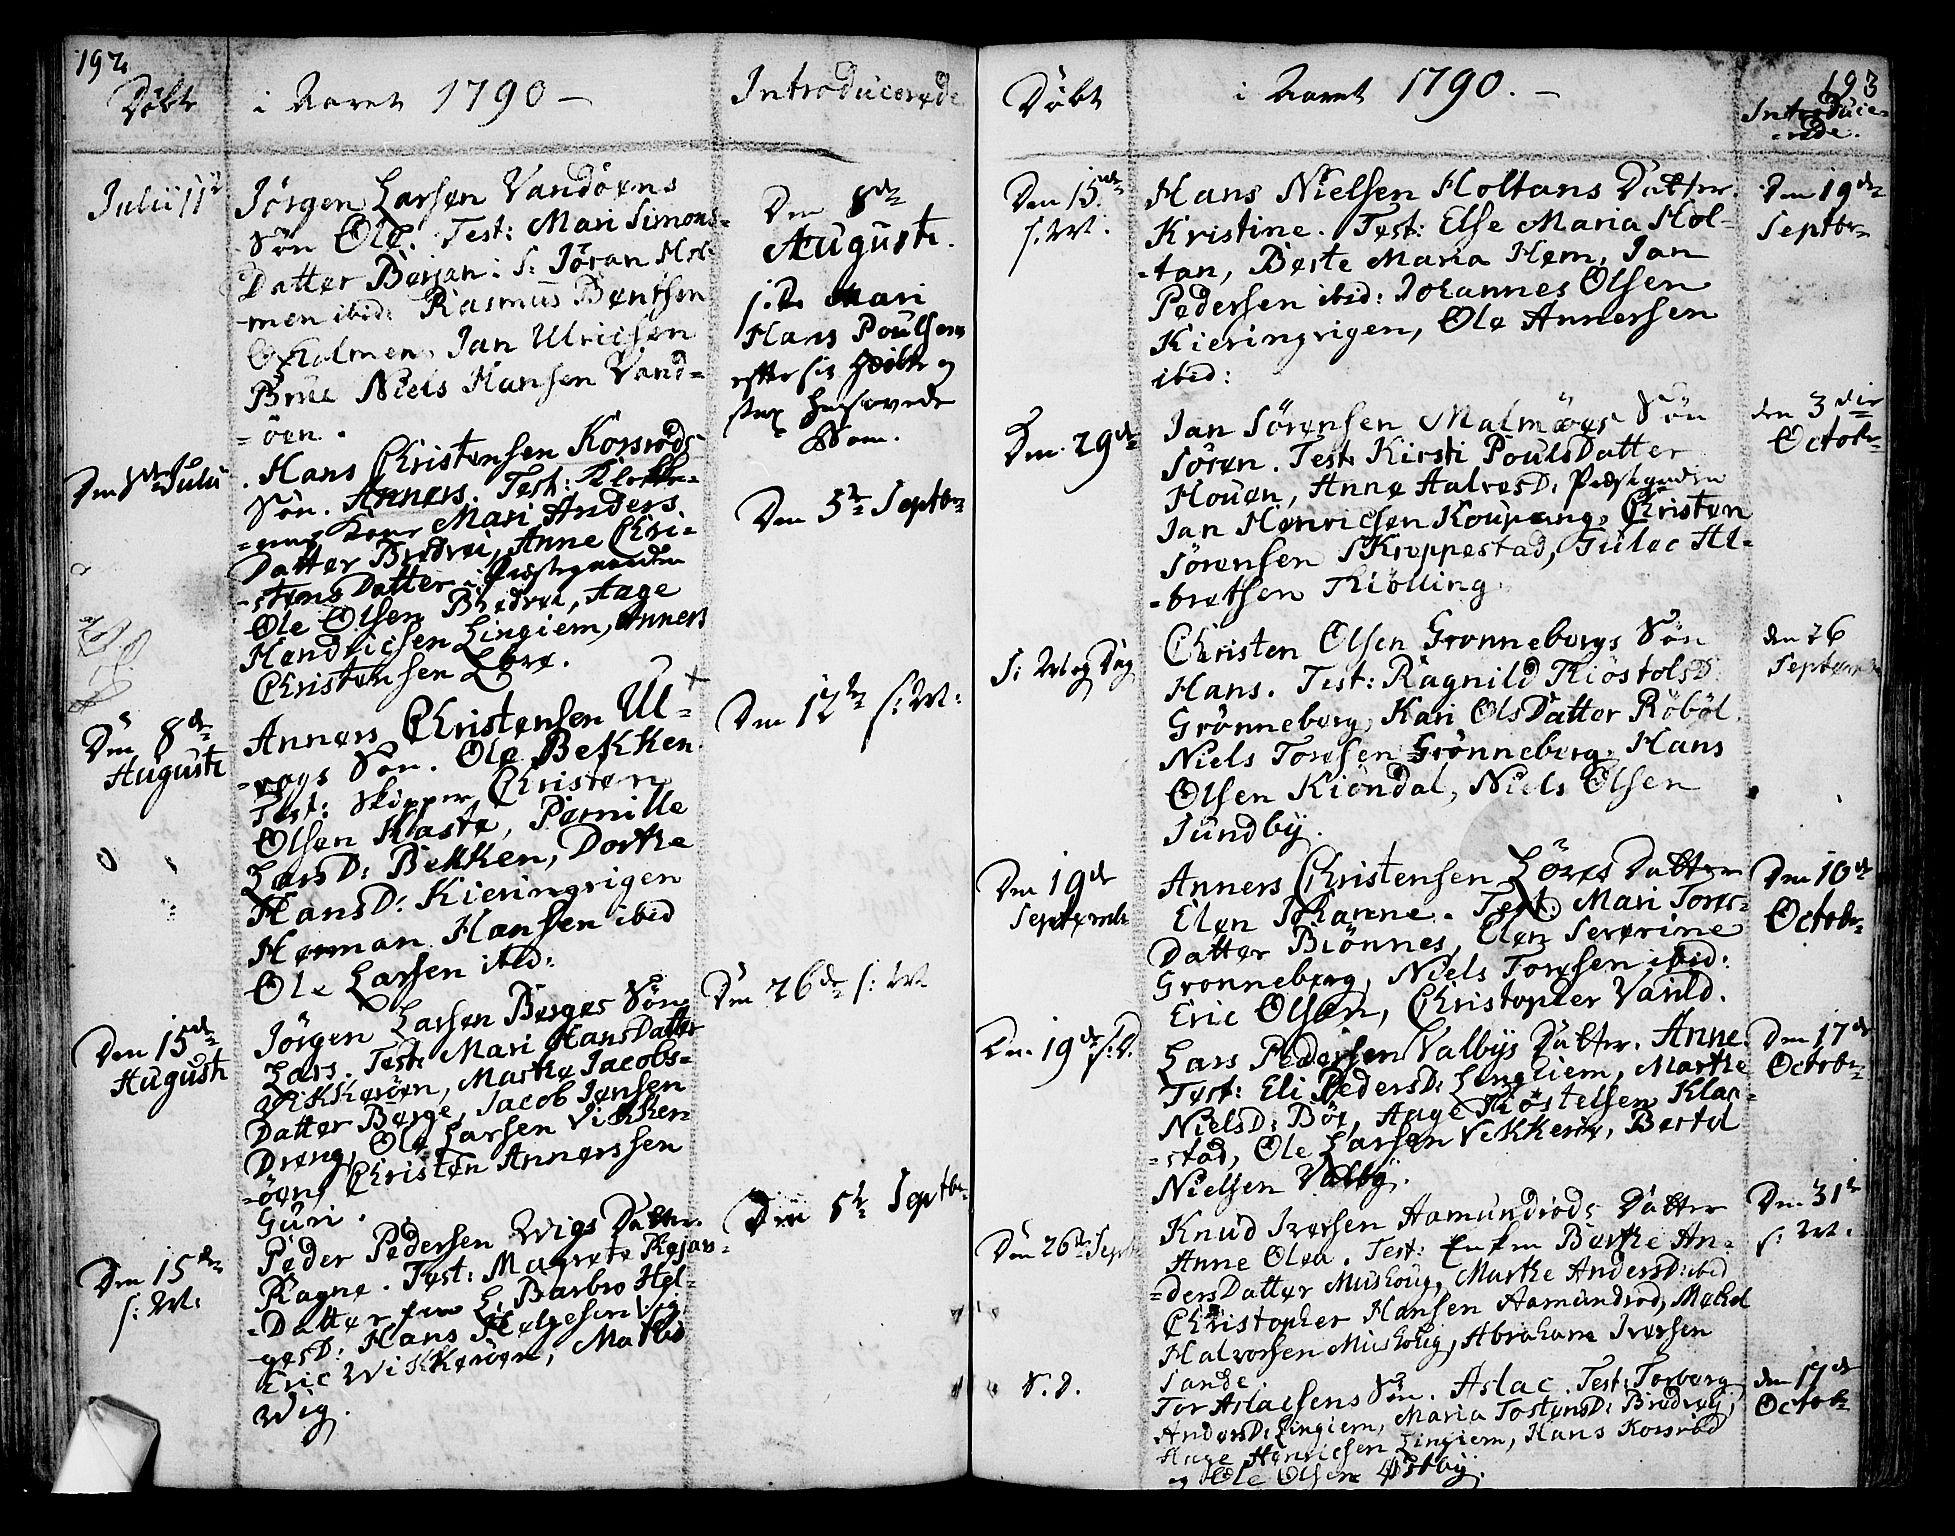 192
Döbte i Aaret 1790 – Introducerede
Julii 11te
Jörgen Larsen Vandöens
Sön Ole. Test: Mari Simons-
Datter Berjan: S: Jöran Hol-
men ibid: Rasmus Bentsen
Holmen, Jan Ulricsen
Brue Niels Hansen Vand-
öen.
Den 8de
Augusti.
s: D. Mari
Hans Poulsens
efter sit
Den Julii
Hans Christensen Korsröds
Sön. Anners. Test: Klokke-
rens Kone Mari Anders
Datter Bredvei, Anne Chri-
stens Datter i Præstegaarden
Ole Olsen Bredvei, Aage
Hendricsen Lingiem, Anners
Christensen Ebre.
Den 5te Septbr
Den 8de
Augusti
Anners Christensen Ul-
vogs Sön. Ole Bekken
Test: Skipper Christen
Olsen Kaste, Pernille
LarsD: Bekken, Dorthe
HansD: Kieringvigen
Herman Hansen ibid
Ole Larsen ibid:
Den 12te s: M:
Den 15de
Augusti
Jörgen Larsen Berges Sön
Lars. Test: Mari HansDatter
Vikkeröen, Marthe Jacobs-
Datter Berge, Jacob Jensen
Dreng, Ole Larsen Vikker-
öen, Christen Annerssen
Guri.
Den 26de s: M
Den 15de
s: M:
Peder Pedersen Wigs Datter
Ragne. Test: Magrete
Datter Barbro Hel-
gesD: Hans Helgesen Vig
Eric Wikkeröen, Mathis
Wig.
Den 5te Septbr
193
Döbt i Aaret 1790. – Introduce-
rede.
Den 15de
s: M:
Hans Nielsen Holtans Datter
Kristine. Test: Else Maria Hol-
tan, Berte Maria Hem, Jan
Pedersen ibid: Johannes Olsen
Kieringvigen, Ole Annersen
ibid:
Den 19de
Septbr
Den 29de
Jan Sörensen Malmöes Sön
Sören. Test: Kirsti PoulsDatter
Houen, Anne AalvesD: Præstgaarden
Jan Henricsen Koupang, Christen
Sörensen Skroppestad, Gulac Al-
bretsen Thiölling.
den 3die
Octobr
S: M: og Dag
Christen Olsen Grönnebergs Sön
Hans. Test: Ragnild ThiöstolsD
Grönneberg, Kari OlsDatter Röböl.
Niels Toresen Grönneberg, Hans
Olsen Kiöndal, Niels Olsen
Sundby.
den 26
Septembr
Den 19de
Septembr
Anners Christensen Löves Datter
Elen Johanne. Test: Mari Tores-
Datter Biönnes, Elen Severine
Grönneberg, Niels Toresen ibid:
Eric Olsen, Christopher Varild.
Den 10de
Octobr
Den 19de s: D.
Lars Pedersen Valbys Datter. Anne
Test: Eli PedersD: Lingiem, Marthe
NielsD: Böe, Aage Kiöstelsen Klaa-
stad, Ole Larsen Vekkerøe, Bertel
Nielsen Valby.
Den 17de
Octobr
Den 26de Septb
Knud Iversen Aamundröds Datter
Anne Olea. Test: Enken Berthe An-
dersDatter Mushoug, Marthe AndersD: ibid
Christopher Hansen Aamundröd, Mekel
Halvorsen Mushoug, Abraham Iversen
Sande.
Den 31te
s: M.
S. D.
Tor Aslacsens Sön. Aslac. Test: Torborg
AndersD: Lingiem, Maria TostensD: Bredvei,
Hage Henricsen Lingiem, Hans Korsröd
og Ole Olsen Östby.
den 17de
Octobr